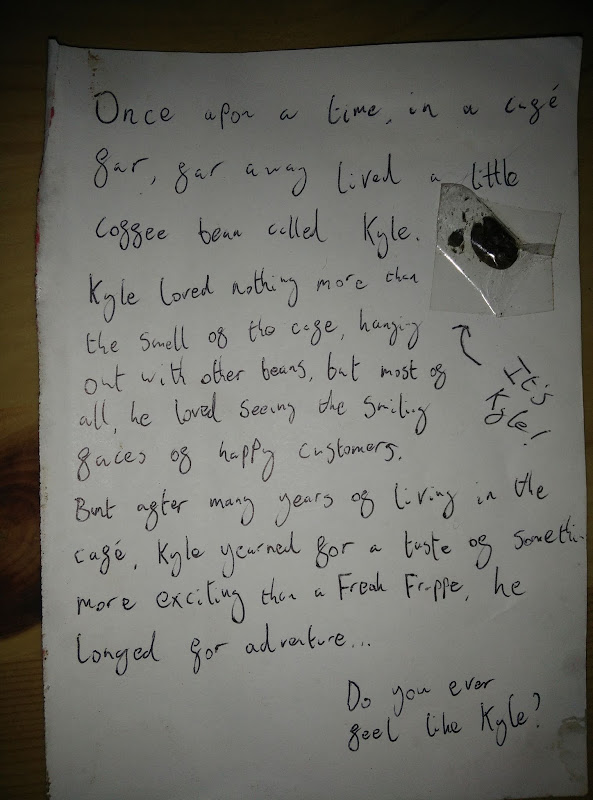 Once upon a time, in a café
far, far away lived a little
coffee bean called Kyle.
Kyle loved nothing more than
the smell of the cafe, hanging
out with other beans, but most of
all, he loved seeing the smiling
faces of happy customers.
It's
Kyle!
But after many years of living in the
café, Kyle yearned for a taste of somethi
more exciting than a Freak Frappe, he
longed for adventure...
Do you ever
feel like Kyle?